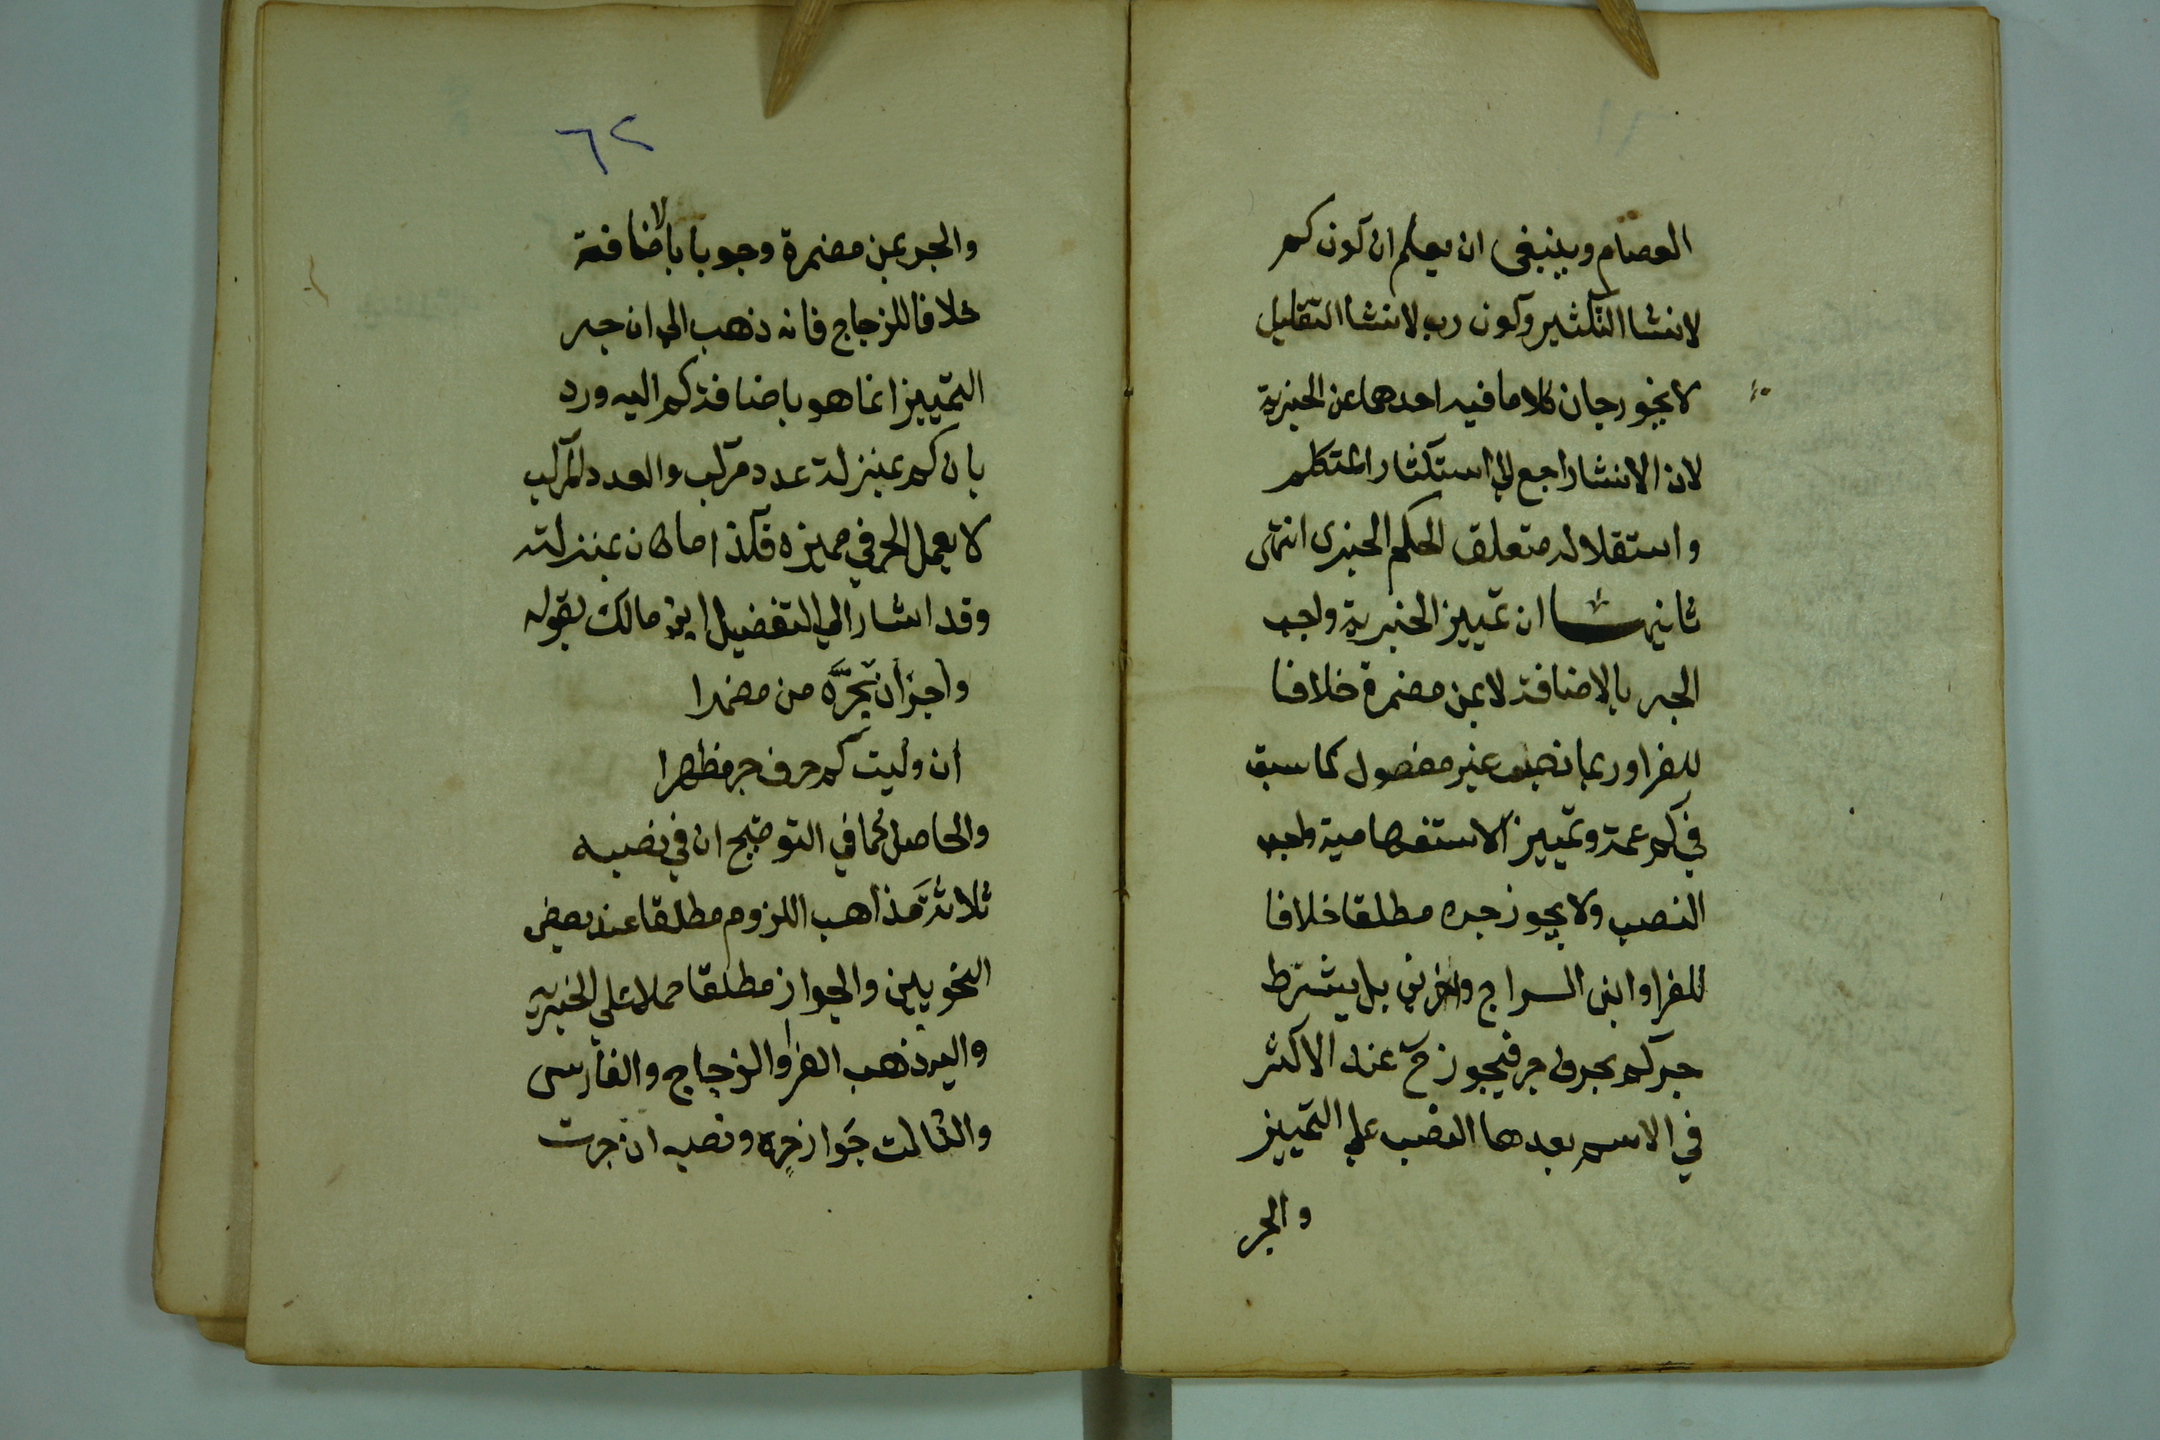 العصام وينبغي ان يعلم ان كون كم
لانشا التكثير وكون رب لانشا التقليل
لا يخرجان كلاما فيه احدهما عن الخبرية
لان الانشا راجع الى استكثار المتكلم
واستقلاله متعلق الحكم الخبرى انتهى
ثانيها ان تمييز الخبرية واجب
الجر بالاضافة لا بمن مضمرة خلافا
للفرا وربما نصب غير مفصول كما سبق
في كم عمة وتمييز الاستفهامية واجب
النصب ولا يجوز جره مطلقا خلافا
للفرا وابن السراج واخرين بل يشترط
جر كم بحرف جر فيجوز ح عند الاكثر
في الاسم بعدها النصب علي التمييز
والجر
٦٢
والجر بمن مضمرة وجوبا بالاضافة
خلافا للزجاج فانه ذهب الى ان جر
التمييز انما هو باضافة كم اليه ورد
بان كم بمنزلة عدد مركب والعدد المركب
لا يعمل الجر في مميزه فكذا ما كان بمنزلته
وقد اشار الي التفضيل ابن مالك بقوله
وأجز أن تجرَّه من مضمرا
أن وليت كم حرف جر مظهرا
والحاصل كما في التوضيح ان في نصبه
ثلاثة مذاهب اللزوم مطلقا عند بعض
النحويين والجواز مطلقا حملا علي الخبريه
واليه ذهب الفرا والزجاج والفارسى
والثالث جواز جره ونصبه ان جرت